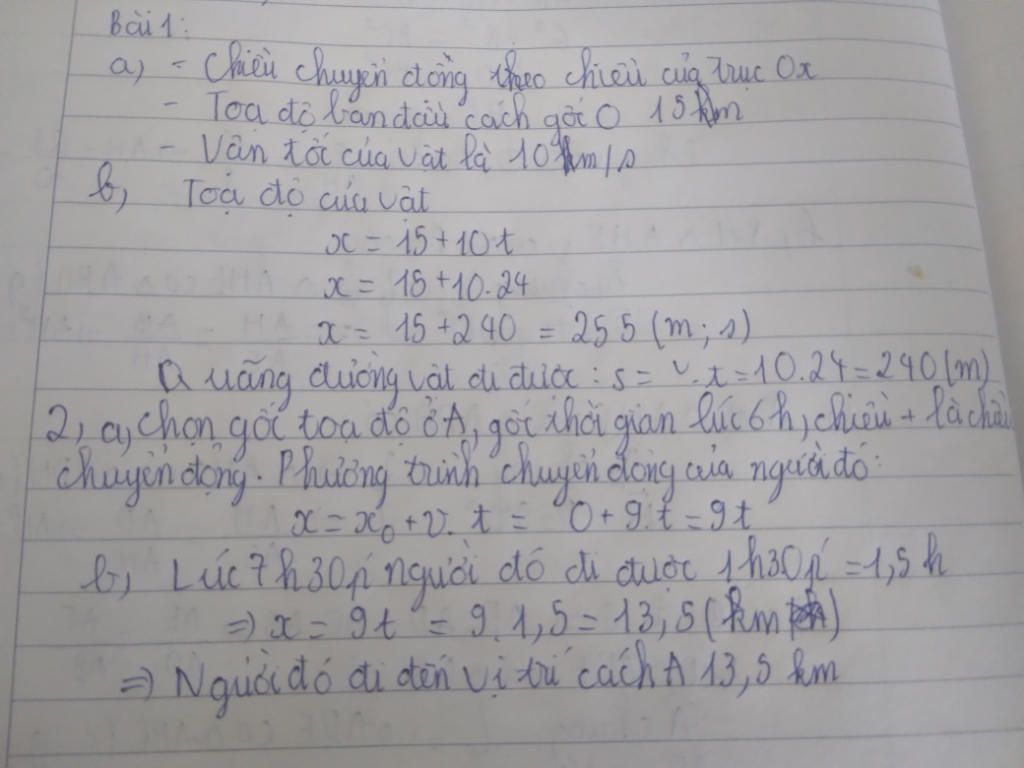 Bài 1:
a, - Chiều chuyển động theo chiều của trục Ox
- Toạ độ ban đầu cách gốc O 15 km
- Vận tốc của vật là 10 km/s
b, Toạ độ của vật
x = 15 + 10t
x = 15 + 10.24
x = 15 + 240 = 255 (m; s)
Quãng đường vật đi được: s = v.t = 10.24 = 240 (m)
2, a, Chọn gốc toạ độ ở A, gốc thời gian lúc 6h, chiều + là chiều
chuyển động. Phương trình chuyển động của người đó:
x = x₀ + v. t = 0 + 9.t = 9t
b, Lúc 7h30p' người đó đi được 1h30p' = 1,5h
=> x = 9t = 9.1,5 = 13,5 (km)
=> Người đó đi đến vị trí cách A 13,5 km